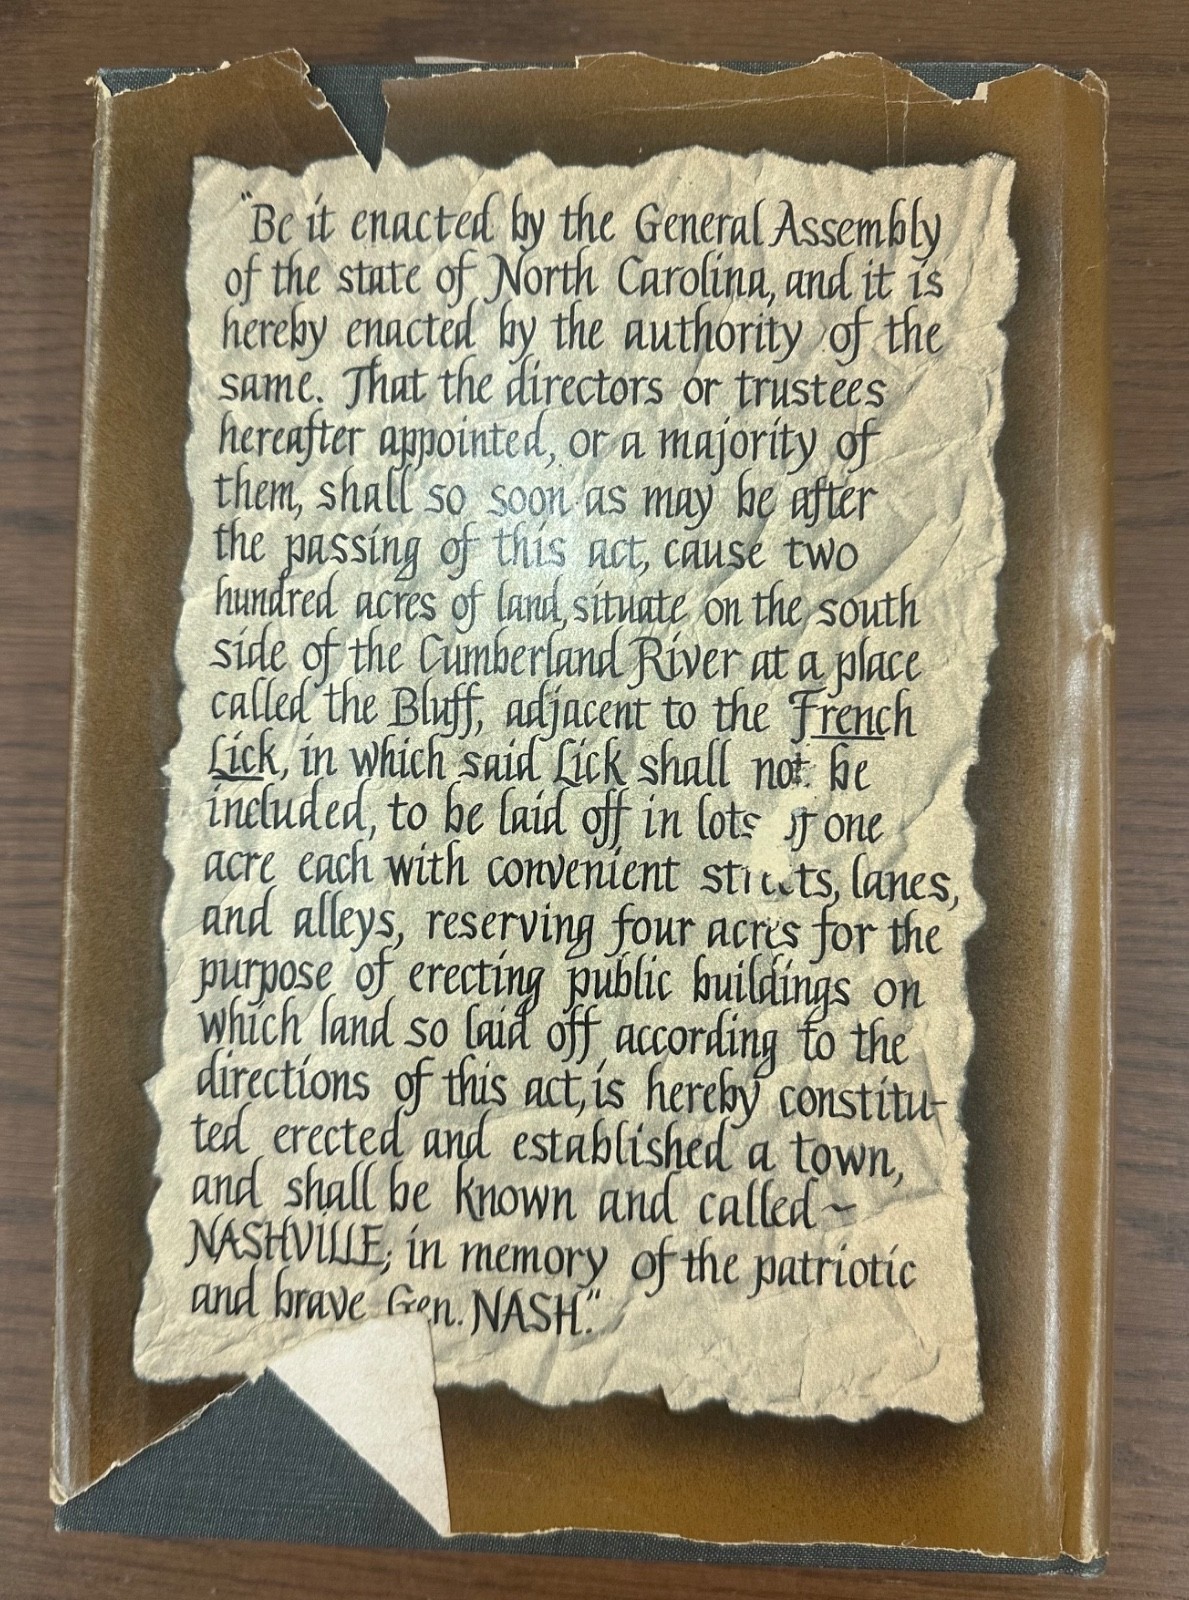 "Be it enacted by the General Assembly
of the state of North Carolina, and it is
hereby enacted by the authority of the
same. That the directors or trustees
hereafter appointed, or a majority of
them, shall so soon as may be after
the passing of this act, cause two
hundred acres of land, situate on the south
side of the Cumberland River at a place
called the Bluff, adjacent to the French
Lick, in which said Lick shall not be
included, to be laid off in lots of one
acre each with convenient streets, lanes,
and alleys, reserving four acres for the
purpose of erecting public buildings on
which land so laid off according to the
directions of this act, is hereby constitu-
ted erected and established a town,
and shall be known and called~
NASHVILLE; in memory of the patriotic
and brave Gen. NASH."